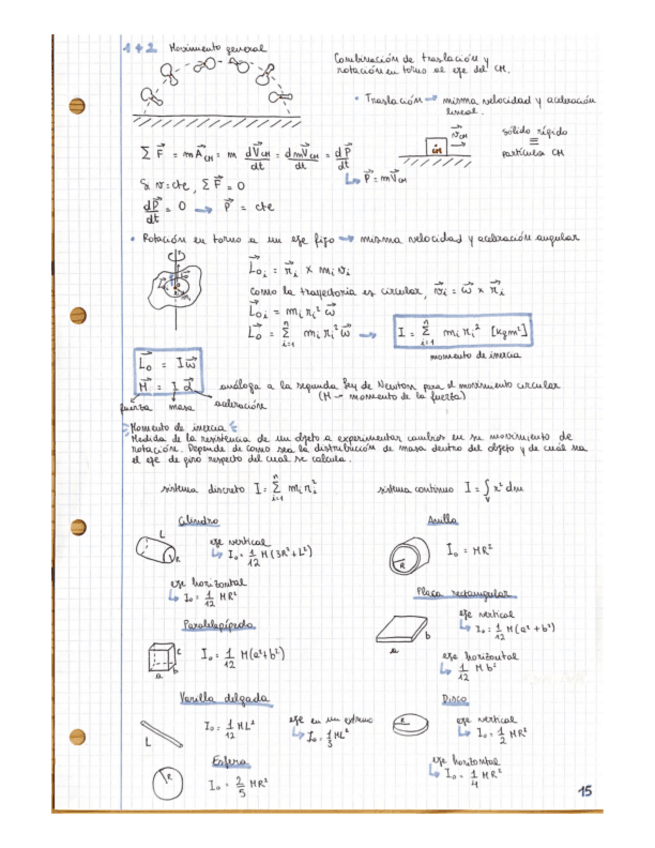 1+2 Movimiento general
Combinación de traslación y
rotación en torno al eje del CM.
• Traslación → misma velocidad y aceleración
lineal.
v⃗CM
CM
sólido rígido
≡
partícula CM
Σ F⃗ = m A⃗CM = m dV⃗CM/dt = dmV⃗CM/dt = dP⃗/dt
↳ P⃗ = mV⃗CM
Si v = cte, Σ F⃗ = 0
dP⃗/dt = 0 → P⃗ = cte
• Rotación en torno a un eje fijo → misma velocidad y aceleración angular
L⃗oi = r⃗i × mi vi
como la trayectoria es circular, v⃗i = ω⃗ × r⃗i
L⃗oi = mi ri² ω⃗
L⃗o = Σ(i=1, n) mi ri² ω⃗ → I = Σ(i=1, n) mi ri² [kgm²]
momento de inercia
L⃗o = I ω⃗
M⃗ = I α⃗
análoga a la segunda ley de Newton para el movimiento circular
(M → momento de la fuerza)
fuerza masa aceleración
Momento de inercia
Medida de la resistencia de un objeto a experimentar cambios en su movimiento de
rotación. Depende de como sea la distribución de masa dentro del objeto y de cuál sea
el eje de giro respecto del cual se calcula.
sistema discreto I = Σ(i=1, n) mi ri²
sistema continuo I = ∫v r² dm
Cilindro
L
R
eje vertical
↳ Io = 1/12 M(3R² + L²)
eje horizontal
↳ Io = 1/12 MR²
Anillo
R
Io = MR²
Placa rectangular
a
b
eje vertical
↳ Io = 1/12 M(a² + b²)
eje horizontal
↳ 1/12 M b²
Paralelepípedo
c
b
a
Io = 1/12 M(a² + b²)
Varilla delgada
L
Io = 1/12 ML²
eje en un extremo
↳ Io = 1/3 ML²
Disco
R
eje vertical
↳ Io = 1/2 MR²
eje horizontal
↳ Io = 1/4 MR²
Esfera
R
Io = 2/5 MR²
15